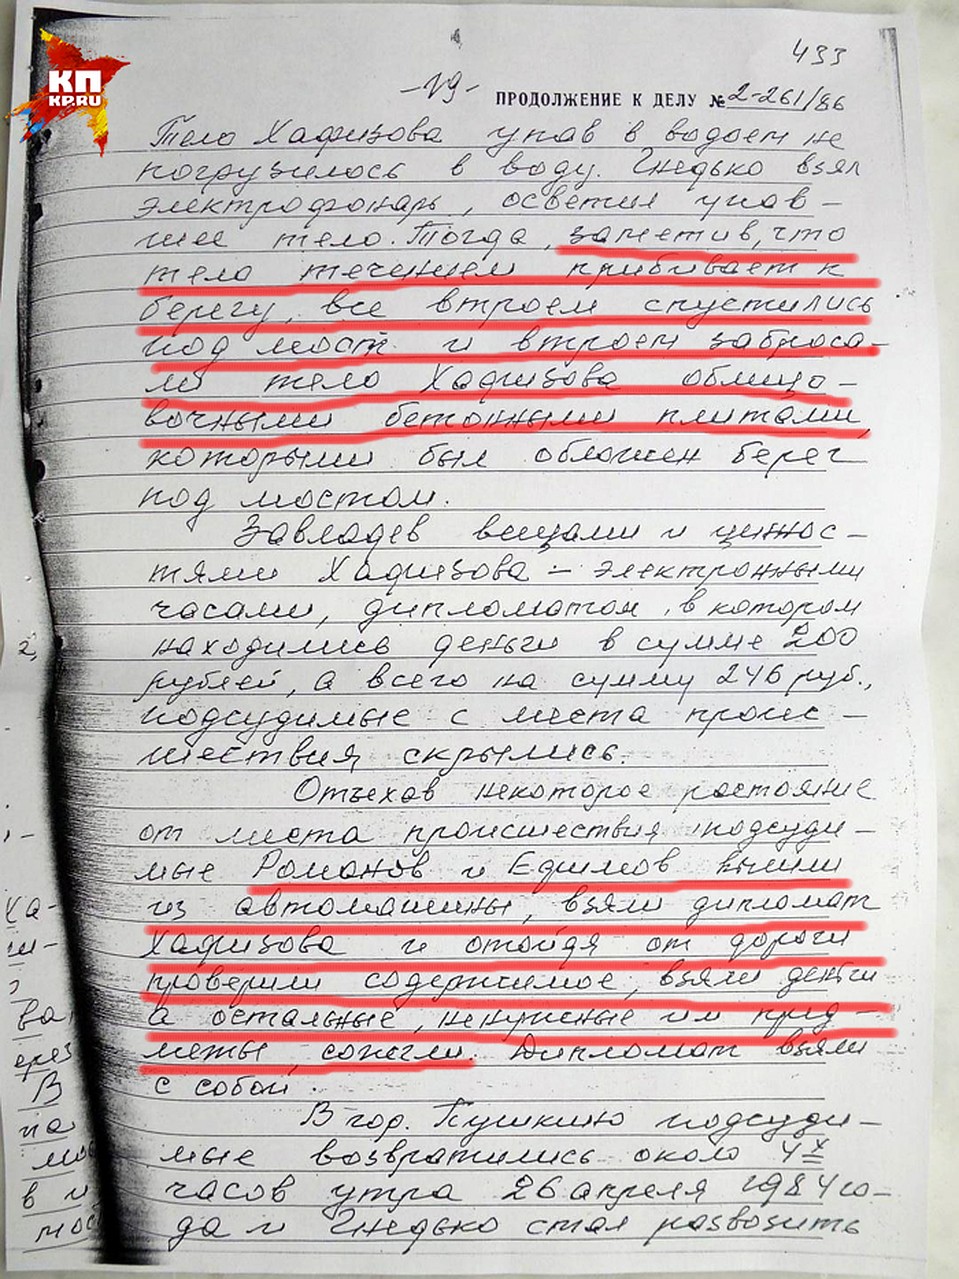 КП
KP.RU
433
-19-
ПРОДОЛЖЕНИЕ К ДЕЛУ № 2-261/86
Тело Хафизова упав в водоем не
погрузилось в воду. Гнедько взял
электрофонарь, осветил упав-
шее тело. Тогда, заметив, что
тело течением прибивает к
берегу, все втроем спустились
под мост и втроем заброса-
ли тело Хафизова облицо-
вочными бетонными плитами,
которыми был обложен берег
под мостом.
Завладев вещами и ценнос-
тями Хафизова - электронными
часами, дипломатом, в котором
находились деньги в сумме 200
рублей, а всего на сумму 246 руб.,
подсудимые с места проис-
шествия скрылись.
Отъехав некоторое растояние
от места происшествия подсуди-
мые Романов и Ефимов вышли
из автомашины, взяли дипломат
Хафизова и отойдя от дороги
проверили содержимое, взяли деньги
а остальные, ненужные им пред-
меты, сожгли. Дипломат взяли
с собой.
В гор. Пушкино подсуди-
мые возвратились около 4х
часов утра 26 апреля 1984 го-
да и Гнедько стал развозить
2,
Ха-
ши-
ва
ерез
В
на
мо
в и
мос